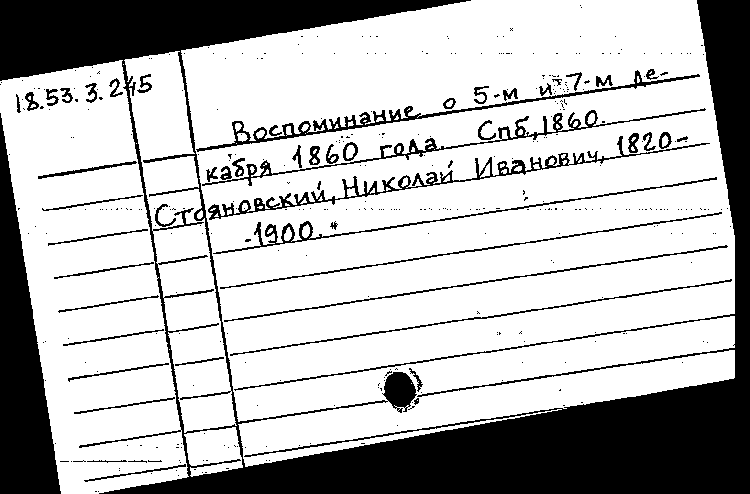 18.53.3.245
Воспоминание о 5-м и 7-м де-
кабря 1860 года. Спб., 1860.
Стояновский, Николай Иванович, 1820-
-1900.*